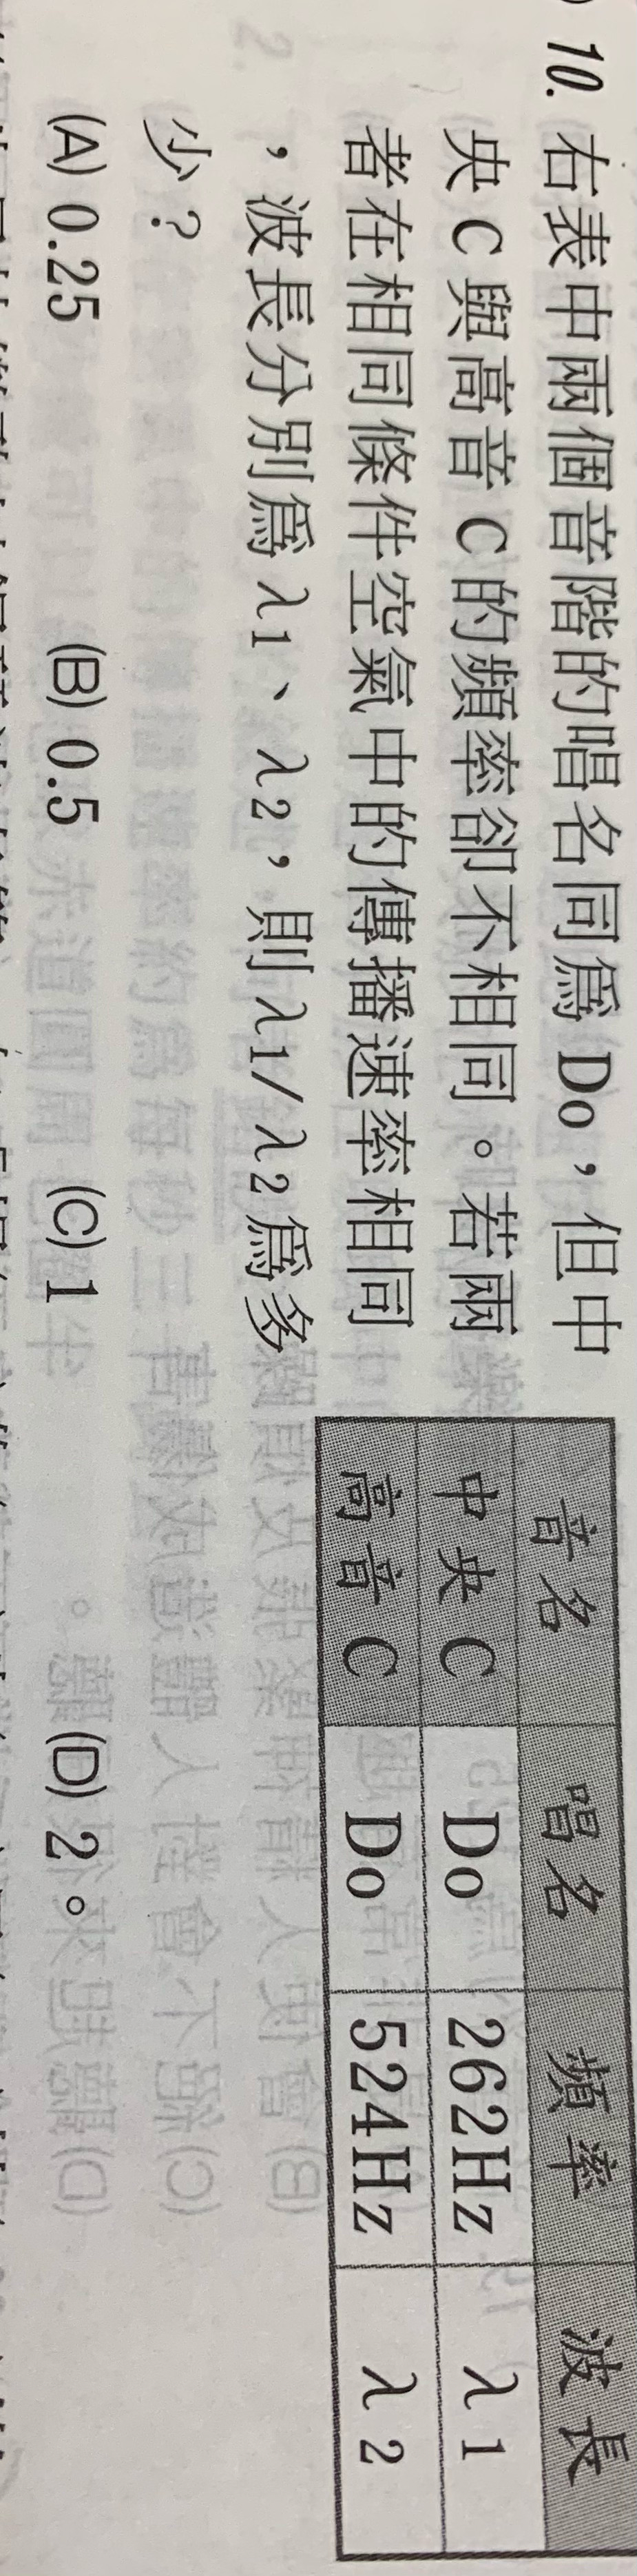 10. 右表中兩個音階的唱名同為 Do，但中
央 C 與高音 C 的頻率卻不相同。若兩
者在相同條件空氣中的傳播速率相同
，波長分別為 λ1、λ2，則 λ1/λ2 為多
少？
(A) 0.25 (B) 0.5 (C) 1 (D) 2。
音名 唱名 頻率 波長
中央 C Do 262Hz λ1
高音 C Do 524Hz λ2